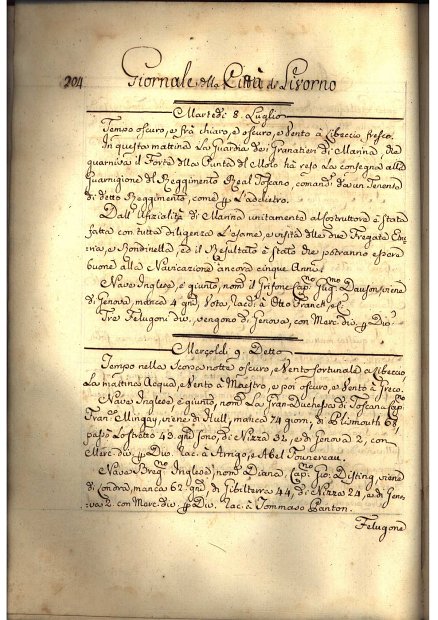 204
Giornale della Città di Livorno
Martedì 8. Luglio
Tempo oscuro, e frà chiaro, e oscuro, e Vento à Libeccio fresco.
In questa mattina la Guardia dei Granatieri di Marina, che
guarniva il Forte della Punta del Molo hà reso la consegna alla
Guarnigione del Reggimento Real Toscano, comand. da un Tenente
di detto Reggimento, come p l'addietro.
Dall' Ufizialità di Marina unitamente al Costruttore è stata
fatta con tutta diligenza l'esame, e visita delle due Fregate Etu-
ria, e Rondinella, ed il Resultato è stato che potranno essere
buone alla Navicazione ancora cinque Anni.
Nave Inglese, è giunto, nom. il Grifone Cap.no Gug.mo Dauson, viene
di Genova, manca 4 gni Vota, racd. à Otto Franck, e C.
Tre Felugoni div. vengono di Genova, con Merc. div. p Div.
Mercoldì 9. Detto
Tempo nella Scorsa notte oscuro, e Vento fortunale a Libeccio,
La mattina Acqua, e Vento à Maestro, e poi oscuro, e Vento à Greco.
Nave Inglese è giunto, nom. La Gran-Duchessa di Toscana Cap.no
Fran. Mingay, viene di Hull, manca 74 giorn, di Plismouth 68,
passò lo Stretto 43. gni sono, di Nizza 32, e di Genova 2, con
Merc. div. p Div. rac. à Arrigo, e Abel Fonnereau.
Nave Breg. Inglese, nom. Diana, Cap.no Gio: Disting, viene
di Londra, manca 62. gni di Gibilterra 44, di Nizza 24, e di Geno-
va 2. con Merc. div. p Div. rac. à Tommaso Panton.
Felugone